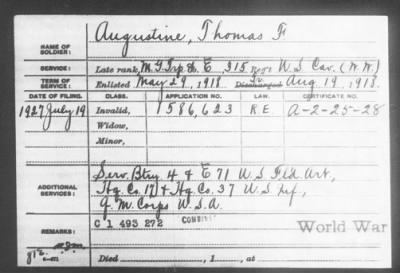 Augustine, Thomas F
NAME OF SOLDIER:
SERVICE: Late rank, M.G. Trp & E, 315 Reg't U S Cav. (W.W.)
TERM OF SERVICE: Enlisted May 29, 1918. Discharged Aug 19, 1918.
DATE OF FILING. CLASS. APPLICATION NO. LAW. CERTIFICATE NO.
1927 July 19 Invalid, 1586,623 R.E. A-2-25-28
Widow,
Minor,
ADDITIONAL SERVICES: Serv. Btry 4 & E 71 U S Fld Art,
Hq. Co. 17 & Hq. Co. 37 U.S. Inf,
Q. M. Corps U.S.A.
C 1 493 272 COMBINE World War
REMARKS:
Died , 1 , at